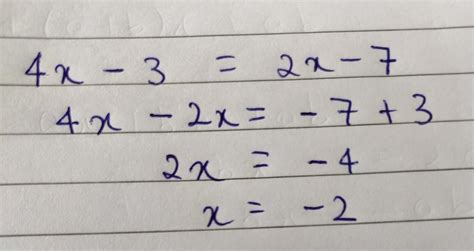 4x - 3 = 2x - 7
4x - 2x = - 7 + 3
2x = - 4
x = - 2